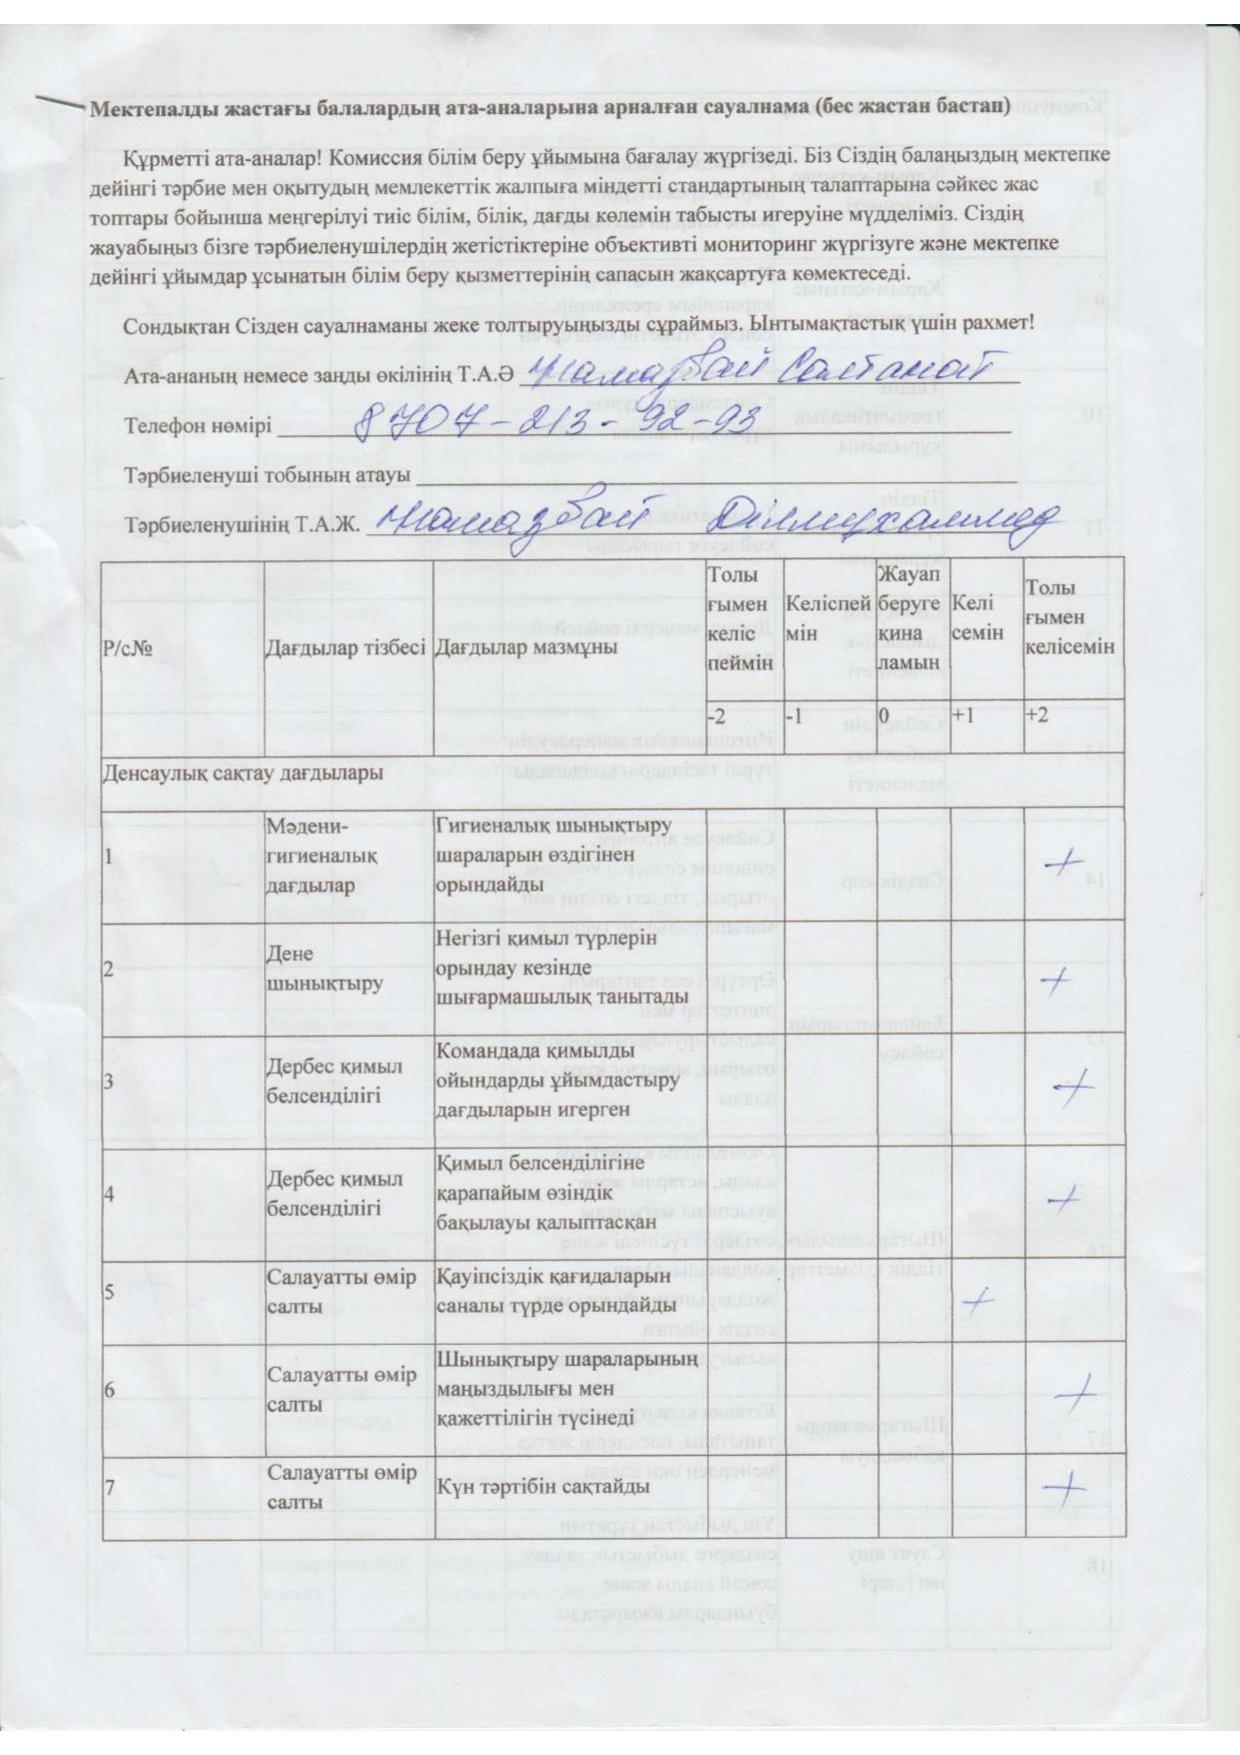 Мектепалды жастағы балалардың ата-аналарына арналған сауалнама (бес жастан бастап)
Құрметті ата-аналар! Комиссия білім беру ұйымына бағалау жүргізеді. Біз Сіздің балаңыздың мектепке
дейінгі тәрбие мен оқытудың мемлекеттік жалпыға міндетті стандартының талаптарына сәйкес жас
топтары бойынша меңгерілуі тиіс білім, білік, дағды көлемін табысты игеруіне мүдделіміз. Сіздің
жауабыңыз бізге тәрбиеленушілердің жетістіктеріне объективті мониторинг жүргізуге және мектепке
дейінгі ұйымдар ұсынатын білім беру қызметтерінің сапасын жақсартуға көмектеседі.
Сондықтан Сізден сауалнаманы жеке толтыруыңызды сұраймыз. Ынтымақтастық үшін рахмет!
Ата-ананың немесе заңды өкілінің Т.А.Ә Намазбай Салтанат
Телефон нөмірі 8707-213-92-93
Тәрбиеленуші тобының атауы
Тәрбиеленушінің Т.А.Ж. Намазбай Ділмұхаммед
Р/с№ Дағдылар тізбесі Дағдылар мазмұны
Толы
ғымен
келіс
пеймін
Келіспей
мін
Жауап
беруге
қина
ламын
Келі
семін
Толы
ғымен
келісемін
-2 -1 0 +1 +2
Денсаулық сақтау дағдылары
1
Мәдени-
гигиеналық
дағдылар
Гигиеналық шынықтыру
шараларын өздігінен
орындайды
+
2
Дене
шынықтыру
Негізгі қимыл түрлерін
орындау кезінде
шығармашылық танытады
+
3
Дербес қимыл
белсенділігі
Командада қимылды
ойындарды ұйымдастыру
дағдыларын игерген
+
4
Дербес қимыл
белсенділігі
Қимыл белсенділігіне
қарапайым өзіндік
бақылауы қалыптасқан
+
5
Салауатты өмір
салты
Қауіпсіздік қағидаларын
саналы түрде орындайды
+
6
Салауатты өмір
салты
Шынықтыру шараларының
маңыздылығы мен
қажеттілігін түсінеді
+
7
Салауатты өмір
салты
Күн тәртібін сақтайды
+